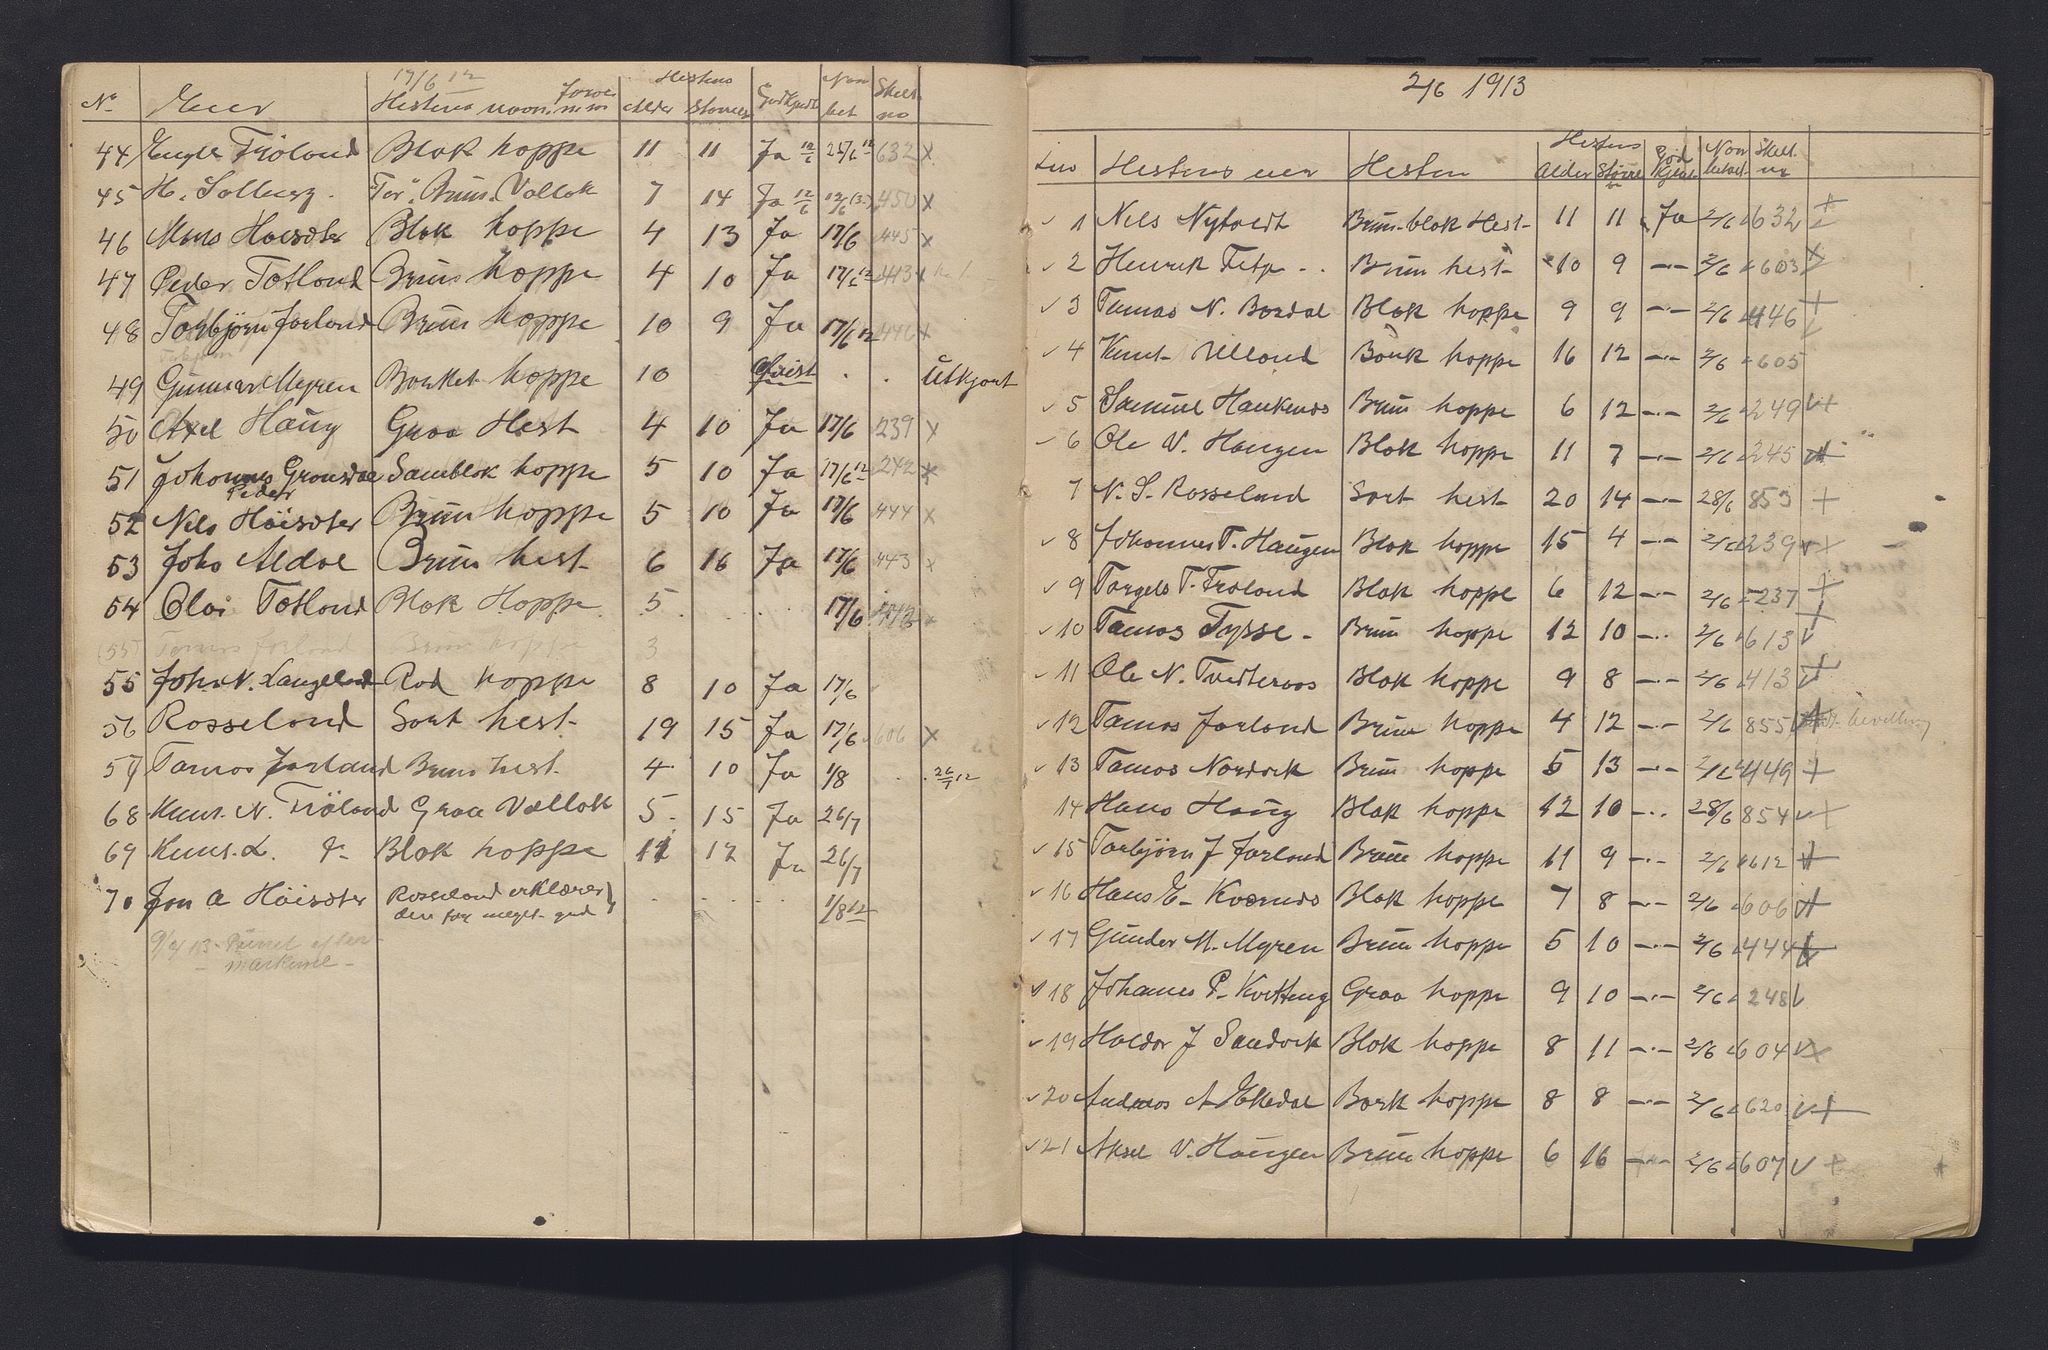 17/6 12
Hestens
No Eier Hestens navn Alder Større Godkjendt Skilt no
44 Engle Fröland Blak hoppe 11 11 Ja 12/6 25/6 12 632 x
45 H. Solberg. "Tor". Brun. Vallak 7 14 Ja 12/6 12/6 450 x
46 Mons Hoisæter Blak hoppe 4 13 Ja 17/6 445 x
47 Peder Totland Brun hoppe 4 10 Ja 17/6 12 413 x
48 Torbjörn Jarland Brun hoppe 10 9 Ja 17/6 12 446 x
49 Gunnar Myren Borket hoppe 10 Utkjort
50 Axel Haug Graa Hest 4 10 Ja 17/6 239 x
51 Johannes Gronsdal Samblok hoppe 5 10 Ja 17/6 12 242 x
Peder
52 Nils Höisæter Brun hoppe 5 10 Ja 17/6 444 x
53 Johs Aldal Brun hest 6 16 Ja 17/6 443 x
54 Olai Totland Blak Hoppe 5 17/6
(55) Tomas Jarland Brun hoppe 3
55 Joh. N. Langeland Rød hoppe 8 10 Ja 17/6
56 Rosseland Sort hest 19 15 Ja 17/6 606 x
57 Tomas Jarland Brun hest. 4 10 Ja 1/8 26/7 12
68 Knut N. Fröland Graa Vallak 5 15 Ja 26/7
69 Knut L. F- Blak hoppe 11 12 Ja 26/7
70 Jon A Höisæter Rosseland erklærer 1/8 12
den for meget god
9/9 13
2/6 1913
Hestens
Hestens eier Hesten Alder Større Skilt nr
1 Nils Nytvedt Brun-blak Hest 11 11 Ja 2/6 632
2 Henrik Tetp Brun hest 10 9 -"- 2/6 603
3 Tomas N. Bordal Blak hoppe 9 9 -"- 2/6 446
4 Knut Ulland Bork hoppe 16 12 -"- 2/6 605
5 Samuel Haukenes Brun hoppe 6 12 -"- 2/6 249
6 Ole V. Haugen Blak hoppe 11 7 -"- 2/6 245
7 N. S. Rosseland Sort hest 20 14 -"- 28/6 853 +
8 Johannes T. Haugen Blak hoppe 15 4 -"- 2/6 239
9 Torgels T. Froland Blak hoppe 6 12 -"- 2/6 237
10 Tomas Tysse - Brun hoppe 12 10 -"- 2/6 613
11 Ole N. Tveiteraas Blak hoppe 9 8 -"- 2/6 413
12 Tomas Jarland Brun hoppe 4 12 -"- 2/6 855 bevilling
13 Tomas Nordvik Brun hoppe 5 13 -"- 2/6 449 +
14 Hans Haug Blak hoppe 12 10 -"- 28/6 854
15 Torbjörn J Jarland Brun hoppe 11 9 -"- 2/6 612
16 Hans E- Kvernes Blak hoppe 7 8 -"- 2/6 606
17 Gunder M. Myren Brun hoppe 5 10 -"- 2/6 444
18 Johannes P- Kvitting Graa hoppe 9 10 -"- 2/6 248
19 Haldor J Sandvik Blak hoppe 8 11 -"- 2/6 604
20 Andreas A Ekedal Bork hoppe 8 8 -"- 2/6 620
21 Aksel V. Haugen Brun hoppe 6 16 -"- 2/6 607